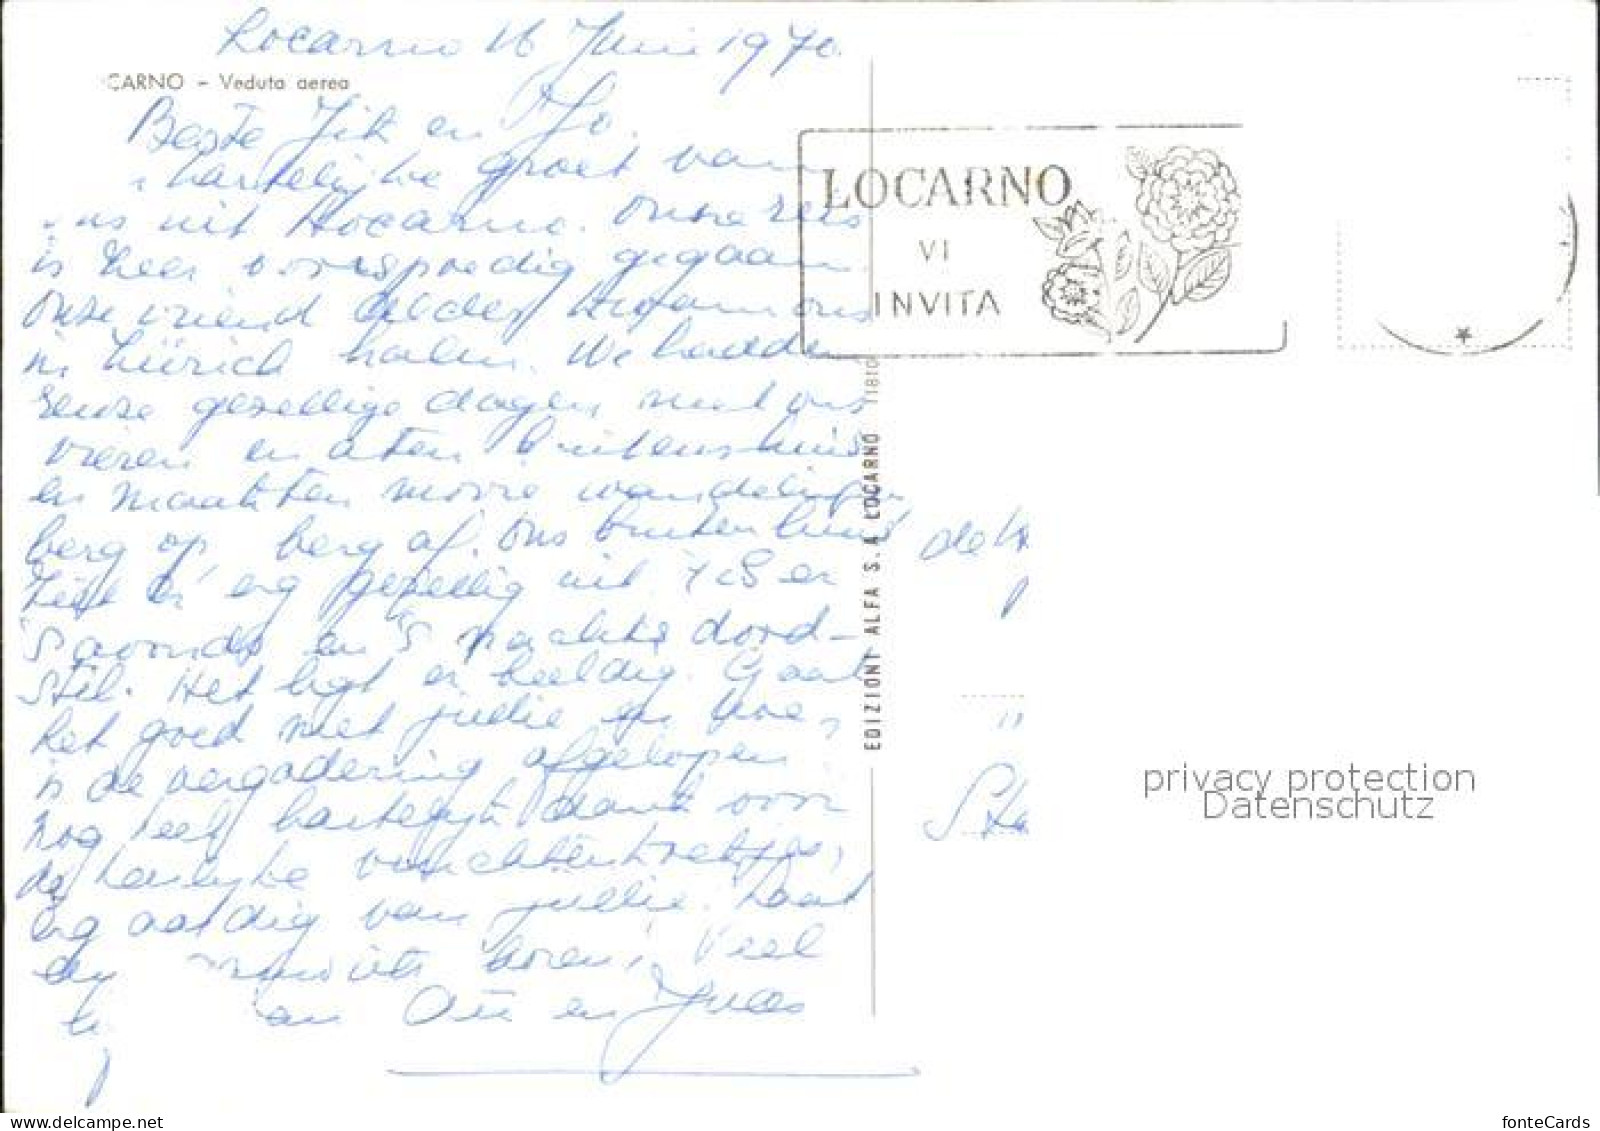 Locarno 16 Juni 1970.
CARNO – Veduta aerea
Beste en Jo.
hartelijke groet van
ons uit Locarno. Onze reis
is zeer voorspoedig gegaan.
Onze vriend kwam ons
in Zürich halen. We hadden
gezellige dagen met ons
vieren en aten buitenshuis
en maakten mooie wandelingen
berg op, berg af. Ons buitenhuis
ziet er erg gezellig uit en
's avonds en 's nachts dood-
stil. Het ligt er beeldig. Gaat
het goed met jullie en hoe
is de vergadering afgelopen
nog heel hartelijk dank voor
de heerlijke
erg aardig van jullie. Laat
horen! Veel
van en
LOCARNO
VI
INVITA
EDIZIONI ALFA S. A. LOCARNO 11810
de
privacy protection
Datenschutz
fonteCards